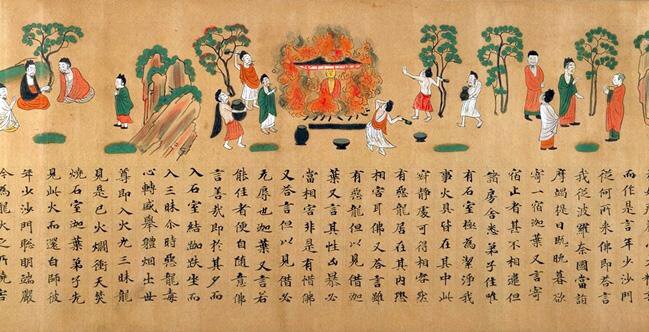 而作是言年少沙門
從何所來佛即答言
我從波羅奈國當詣
摩竭提日既晚暮欲
寄一宿迦葉又言寄
宿止者甚不相違但
諸房舍悉弟子住唯
有石室極為潔淨我
事火具皆在其中此
寂靜處可得相容然
有惡龍居在其內恐
相害耳佛又答言雖
有惡龍但以見借迦
葉又言其性兇暴必
當相害非是有惜佛
又答言但以見借必
無辱也迦葉又言若
能住者便自隨意佛
言善哉即於其夕而
入石室結跏趺坐而
入三昧爾時惡龍毒
心轉盛舉體烟出世
尊即入火光三昧龍
見是已火焰衝天焚
燒石室迦葉弟子先
見此火而還白師彼
年少沙門聰明端嚴
今為龍火之所燒害